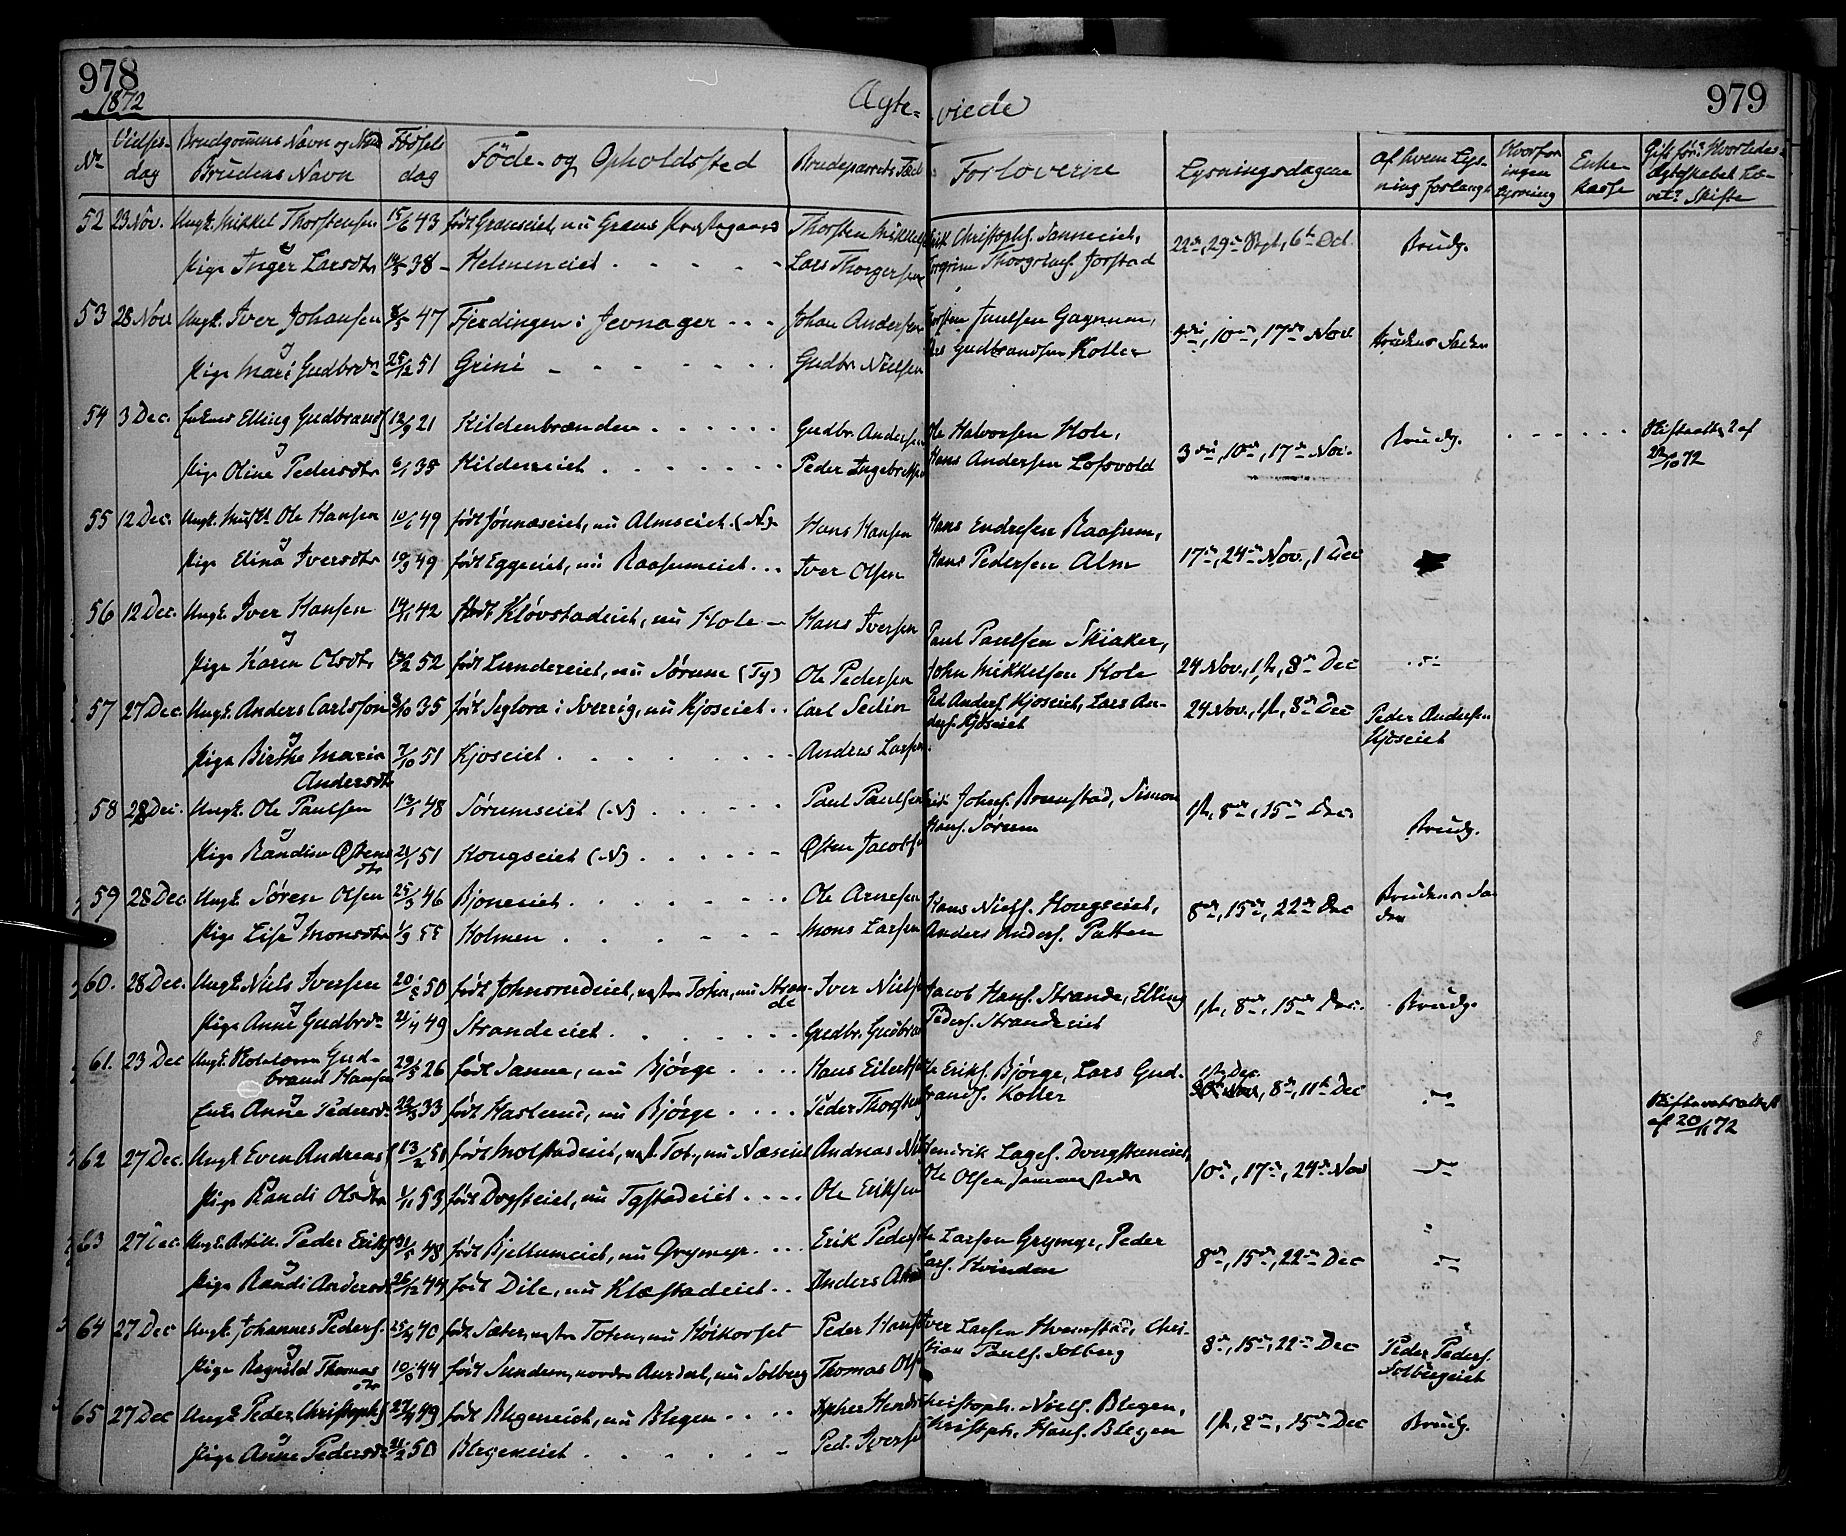 978
1872
Ægte-viede
979
No Vielses-dag Brudgommens Navn og Brudens Navn Fødsels dag Føde- og Opholdssted Brudeparrets Fædre Forloverne Lysningsdagene Af hvem Lysning forlangt Hvorfor ingen Lysning Enke kasse Gift før? Hvorledes Ægteskabet hævet? Skifte
52 23 Nov. Ungk. Mikkel Thorstensen 15/6 43 født Granseiet, nu Grans Præstegaard Thorsten Mikkels Erik Christophs. Sanneeiet, 22de, 29de Sept, 6te Oct Brudg.
og
Pige Inger Larsdtr 38 - Helmeneiet Lars Thorgersen Thorgrim Thorgrims. Jorstad
53 28 Nov Ungk. Iver Johansen 47 Fjerdingen i Jevnager Johan Andersen Paulsen Gagnum, 3die, 10de, 17de Nov Brudens Fader
og
Pige Mari Gudbrdtr 25/12 51 Grini Gudbr. Nielsen Lars Gudbrandsen Koller
54 3 Dec. Enkem. Elling Gudbrands 12/9 21 Kildenbrænden Gudbr. Andersen Ole Halvorsen Hole, 3die, 10de, 17de Nov. Brudg. Skifteattest af
og
Pige Oline Pedersdtr 6/1 35 Hildeneiet Peder Ingebrigts Hans Andersen Lofsvold 22/10 72
55 12 Dec. Ungk. Ole Hansen 10/6 49 født Jønnæseiet, nu Almseiet (N). Hans Hansen Hans Endresen Raasum, 17de, 24de Nov., 1 Dec
og
Pige Elina Iversdtr 10/9 49 født Eggeeiet, nu Raasumeiet Iver Olsen Hans Pedersen Alm
56 12 Dec. Ungk. Iver Hansen 14/1 42 født Kløvstadeiet, nu Hole Hans Iversen Paul Paulsen Skiaker, 24 Nov., 1ste, 8de Dec
og
Pige Karen Olsdtr 52 født Lundereiet, nu Sørum (Ty) Ole Pedersen John Mikkelsen Hole
57 27 Dec Ungk. Anders Carlsson 8/10 35 født Seglora i Sverrig, nu Kjoseiet Carl Sedin Ped Anders. Kjoseiet, Lars An- 24 Nov., 1ste, 8de Dec Peder Andersen
og
ders. Kjoseiet Kjoseiet
Pige Birthe Maria 7/10 51 Kjoseiet Anders Larsen
Andersdtr
58 28 Dec. Ungk. Ole Paulsen 13/1 48 Sørumseiet (N) Paul Paulsen Johns. Brenstad, Simon 1ste, 8de, 15de Dec. Brudg.
og
Pige Randine Østens 21/1 51 Hongseiet (N) Østen Jacobs Hans. Sørum
dtr
59 28 Dec Ungk. Søren Olsen 25/3 46 Bjoneeiet Ole Arnesen Hans Niels. Hongseiet, 8de, 15de, 22de Dec Brudens Fader
og
Pige Lise Monsdtr 1/9 55 Holmen Mons Larsen Anders Anders. Putten
60. 28 Dec. Ungk. Niels Iversen 20/8 50 født Johnsrudeiet, vestre Toten, nu Strande Iver Niels Jacob Hans. Strande, Elling 1ste, 8de, 15de Dec. Brudg.
og
Pige Anne Gudbrdtr 21/4 49 Strandeeiet Gudbr. Gudbran Peders. Strandeeiet
61. 23 Dec Ungk. Gud- 26 født Sanne, nu Bjørge Hans Eilerts Ole Eriks. Bjørge, Lars Gud- 1ste Dec.
brand Hansen
8de, 11te Dec
Enke Anne Pedersdtr 22/3 33 født Haslerud, nu Bjørge Peder Thorsten brands. Koller Skifteretsattest
af 20/11 72
62 27 Dec. Ungk. Even Andreas 13/2 51 født Molstadeiet, vest. Tot., nu Næseiet Andreas Niels Hendrik Lages. 10de, 17de, 24de Nov
og
Pige Randi Olsdtr 1/1 53 født Dvergsteiet, nu Tgstadeiet Ole Eriksen Ole Olsen
63 27 Dec. Ungk. Artill. Peder Eriks 21/5 48 født Bjellumeiet, nu Grymyr Erik Peders Ole Larsen Grymyr, Peder 8de, 15de, 22de Dec
og
Pige Randi Andersdtr 26/12 44 født Dile, nu Klæstadeiet Anders And Lars. Kvinden
64 27 Dec Ungk. Johannes Peders. 25/4 40 født Sæter, vestre Toten, nu Høikorset Peder Hans Iver Larsen Hvemstad, Chri- 8de, 15de, 22de Dec Peder Peders.
og
Solbergeiet
Pige Ragnild Thomas 10/6 44 født Sundem, nordre Aurdal, nu Solberg Thomas Ols stian Pauls. Solberg
dtr
65 27 Dec Ungk. Peder Christophs 49 født Blegeneiet, nu Blegen topher Hends Christoph. Niels. Blegen, 1ste, 8de, 15de Dec Brudg.
og
Pige Anne Pedersdtr 21/2 50 Blegeneiet Ped. Iversen Christoph. Hans. Blegen